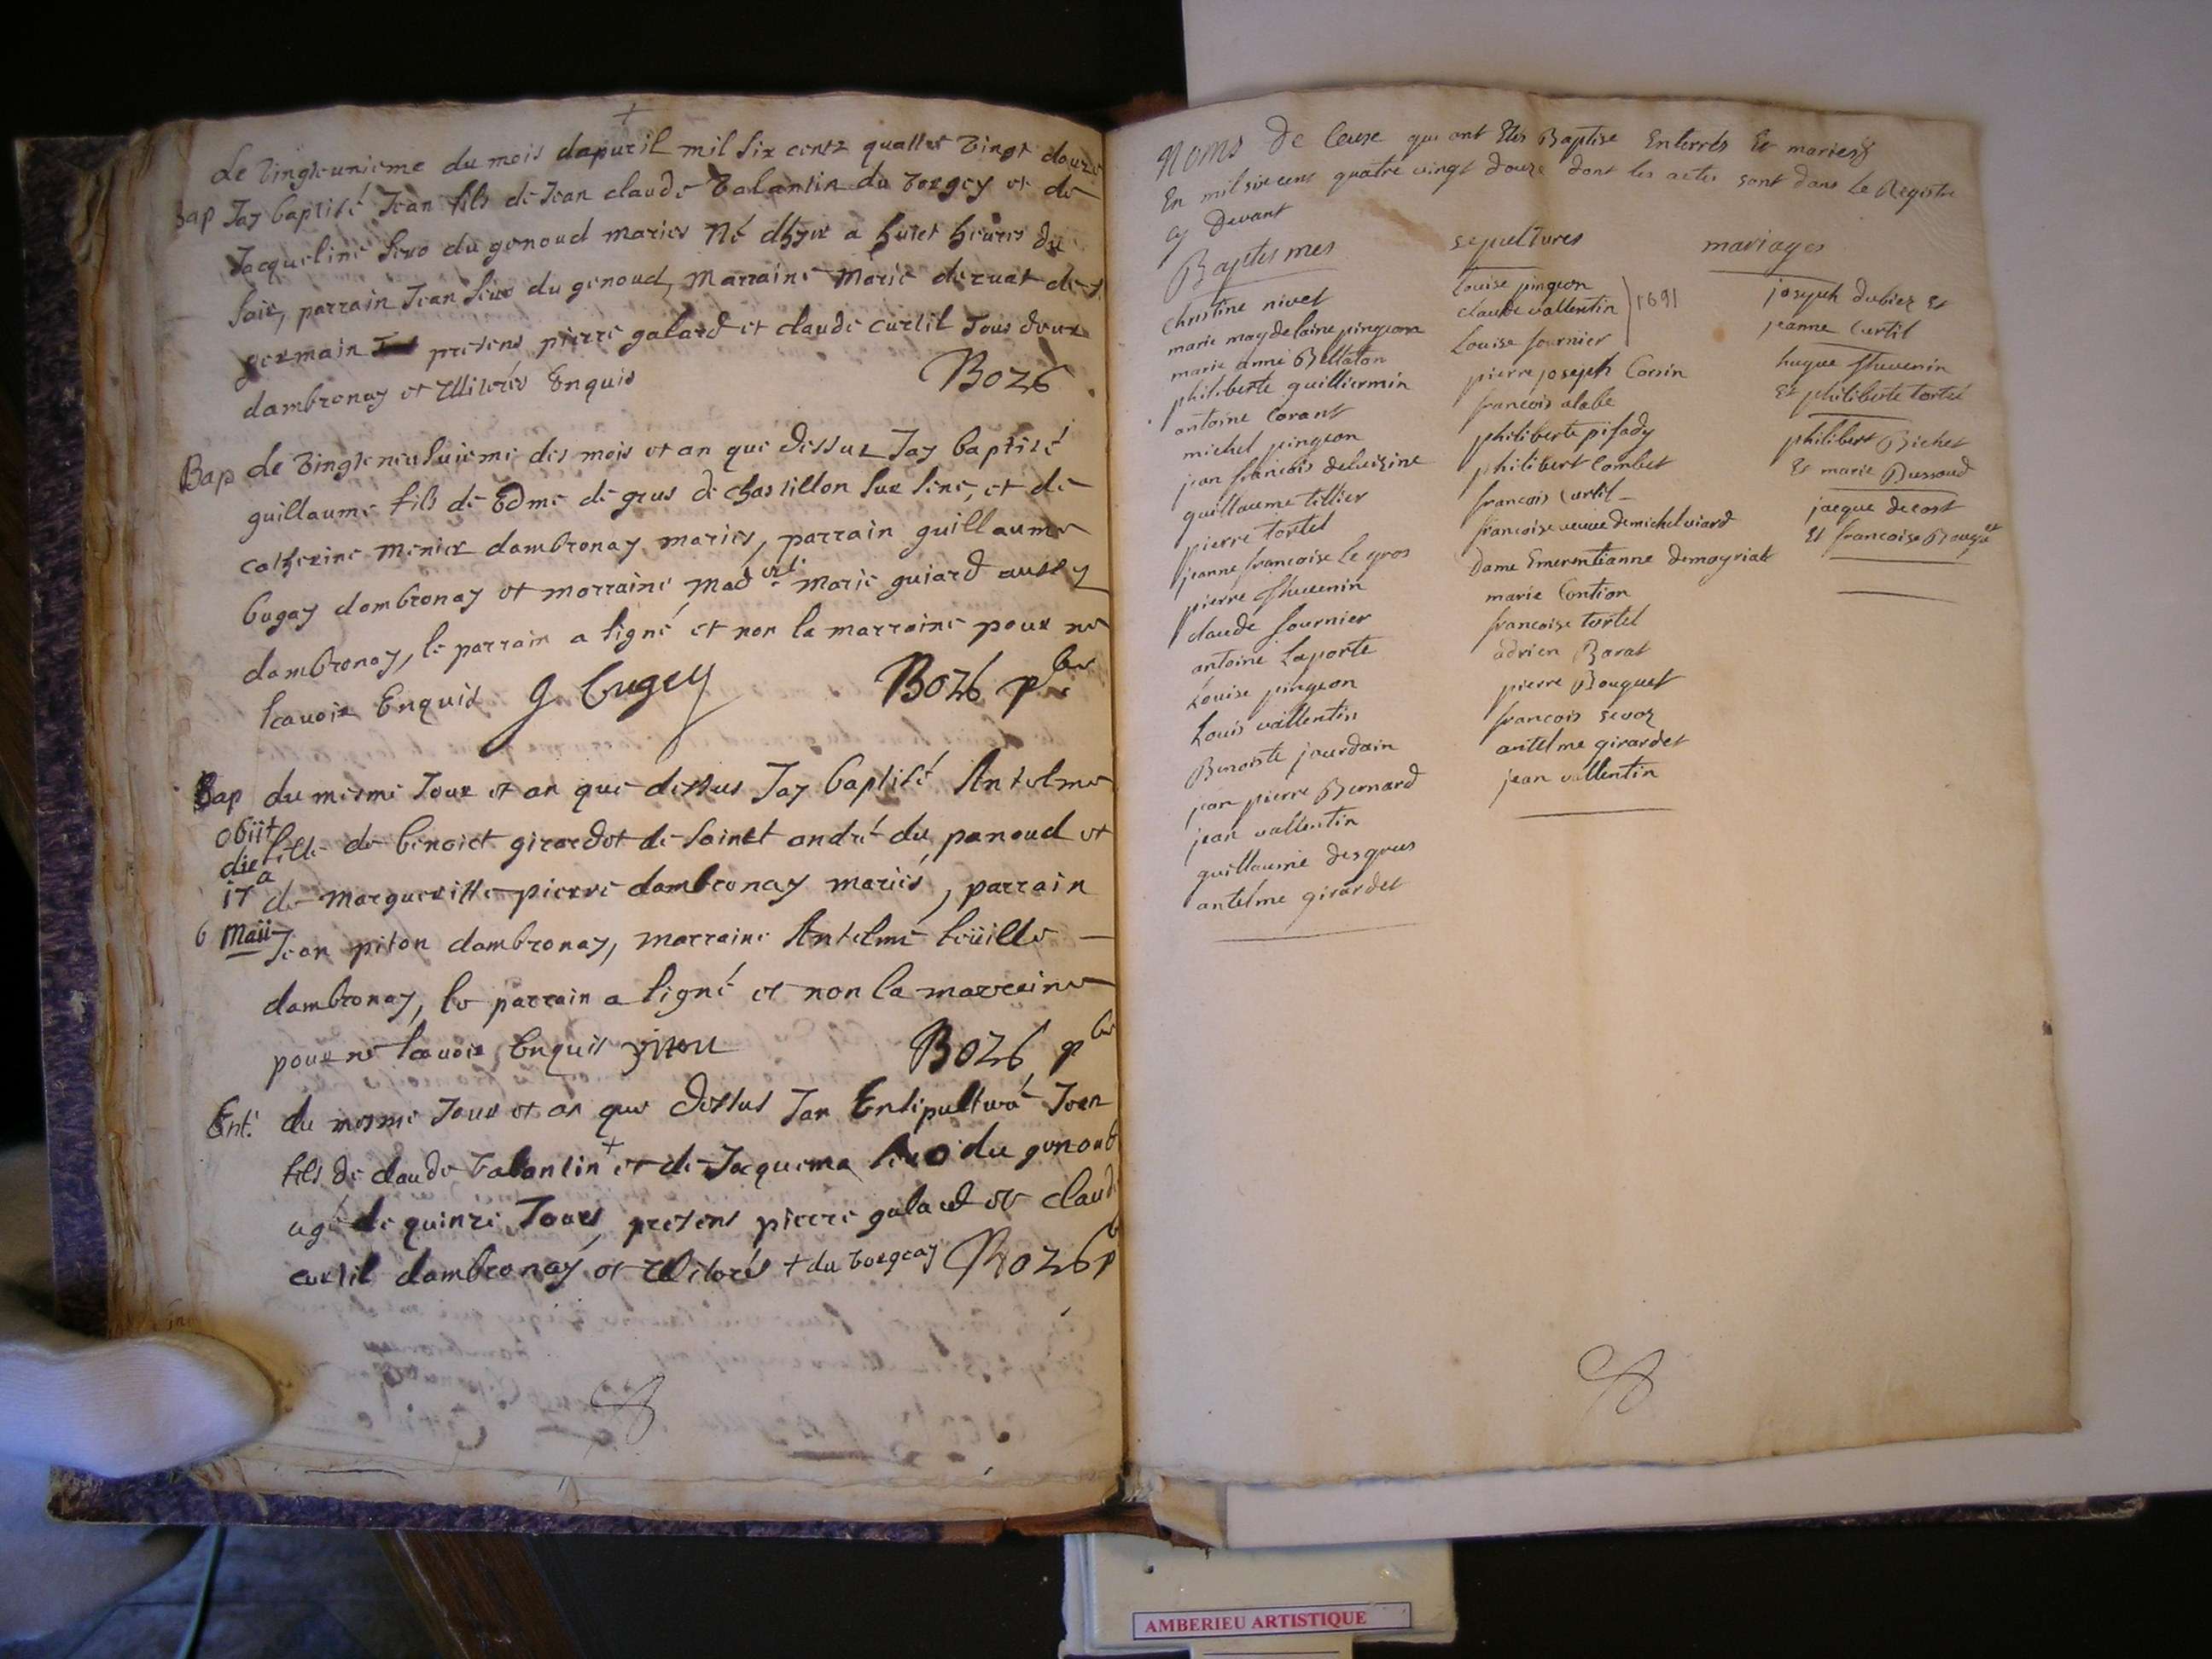 Le vingteunieme du mois dapuril mil six centz quatter vingt douze
Bap Jay baptisé Jean fils de Jean claude Valantin du Vorgey et de
Jacqueline Sevo du genoud mariés Né dhyer a huict heures du
soir, parrain Jean Sevo du genoud, Marraine Marie deruat de st
germain presens pierre galard et claude curtil Tous deux
dambronay et Illiterés Enquis Bozé
Bap Le vingtneufuieme des mois et an que dessus Jay baptisé
guillaume fils de Edme de grus de chastillon sur sene, et de
catherine Menier dambronay mariés, parrain guillaume
bugey dambronay et marraine Mad.elle Marie guiard aussy
dambronay, le parrain a signé et non la marraine pour ne
scavoir Enquis g bugey Bozé pbre
Bap du mesme Jour et an que dessus Jay baptisé Antelme
obiit fille de benoict girardet de sainct andré du panoud et
die
17a de Margueritte pierre dambronay mariés, parrain
6 Maii Jean piton dambronay, marraine Antelme
dambronay, le parrain a signé et non la marraine
pour ne scavoir Enquis piton Bozé pbre
Ent. du mesme Jour et an que dessus Jay Ensepulturé Jean
fils de claude Valantin + et de Jaquema Sevo du genoud
agé de quinze Jours, presens pierre galard et claude
curtil dambronay et Illiterés + du vorgeay Bozé p
Noms De Ceuxe qui ont Estés Baptise Enterrés Et mariess
En mil six cens quatre vingt douze dont les actes sont dans Le Registre
cy Devant
Baptesmes
christine nivet
marie magdelaine pingeon
marie anne Bellaton
philiberte guilliermin
antoine Corant
michel pingeon
jean francois deluisine
guillaume tillier
pierre tortel
jeanne francoise Le gros
pierre thuenin
claude fournier
antoine Laporte
Louise pingeon
Louis vallentin
Benoiste jourdain
jean pierre Bernard
jean vallentin
guillaume desgrus
antelme girardet
sepultures
Louise pingeon
claude vallentin 1691
Louise fournier
pierre joseph Corsin
francois alabe
philiberte pisady
philibert Combet
francois Curtil
francoise veuve de michel viard
Dame Emerentianne demoyriat
marie Contion
francoise tortel
adrien Barat
pierre Bouquet
francois sevoz
antelme girardet
jean vallentin
mariages
joseph dubiez Et
jeanne Curtil
hugue thuenin
Et philiberte tortel
philibert Bichet
Et marie Bussoud
jacque decost
Et francoise
AMBERIEU ARTISTIQUE